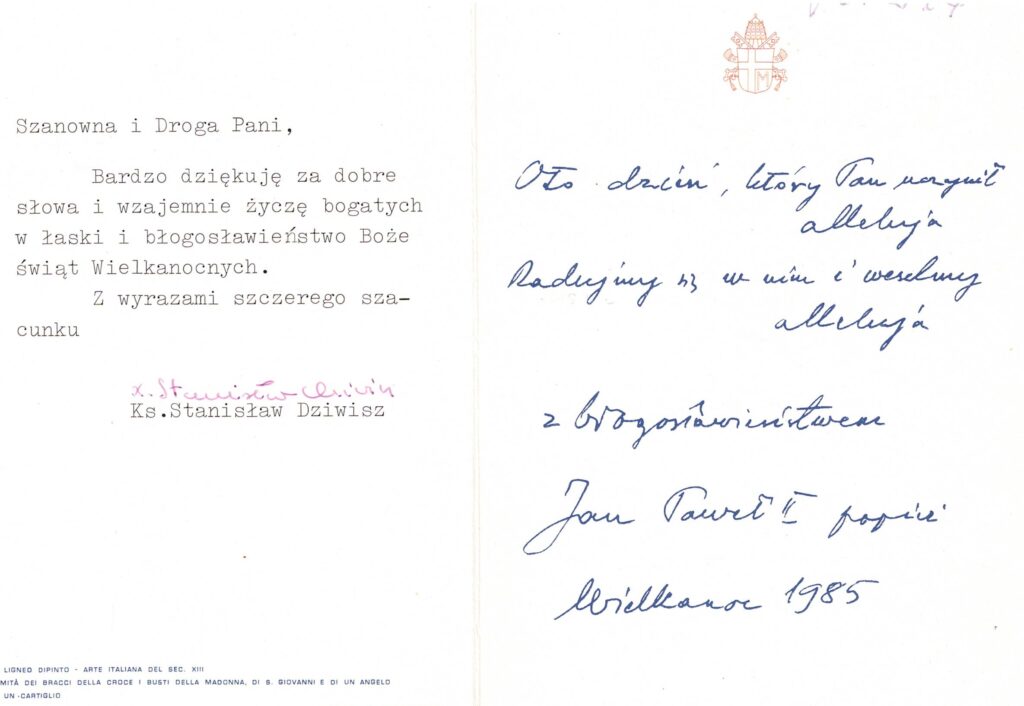 Szanowna i Droga Pani,
Bardzo dziękuję za dobre
słowa i wzajemnie życzę bogatych
w łaski i błogosławieństwo Boże
świąt Wielkanocnych.
Z wyrazami szczerego sza-
cunku
x. Stanisław Dziwisz
Ks.Stanisław Dziwisz
LIGNEO DIPINTO - ARTE ITALIANA DEL SEC. XIII
MITÀ DEI BRACCI DELLA CROCE I BUSTI DELLA MADONNA, DI S. GIOVANNI E DI UN ANGELO
UN CARTIGLIO
M
Oto dzień, który Pan uczynił
alleluja
Radujmy się w nim i weselmy
alleluja
z błogosławieństwem
Jan Paweł II papież
Wielkanoc 1985